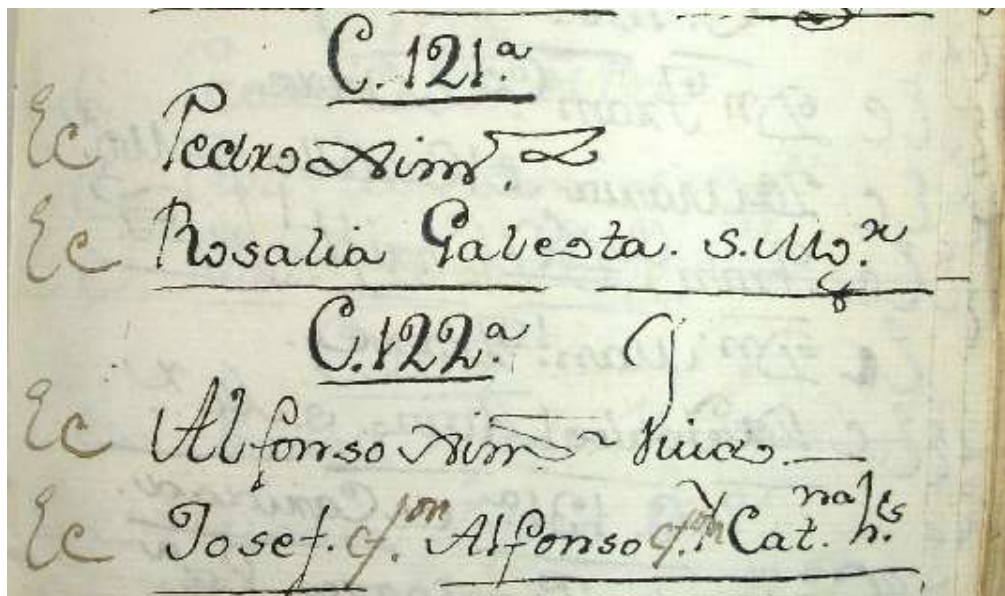 C. 121.a
Ec Pedro Ximz.
Ec Rosalia Galvosta. s. Mgr.
C. 122.a
Ec Alfonso Ximz
Ec Josef. cfon Alfonso cfon y Catna hs.